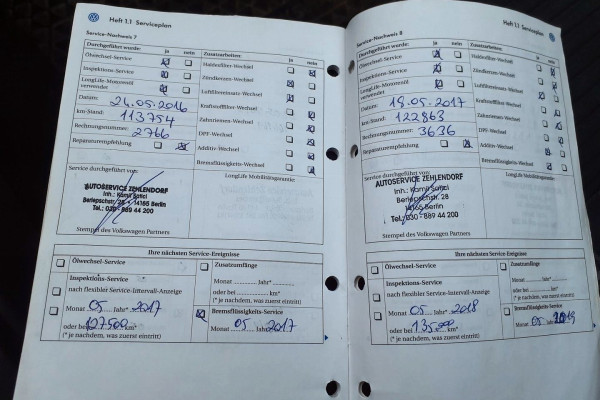 Heft 1.1 Serviceplan
Service-Nachweis 7
Durchgeführt wurde: ja nein
Ölwechsel-Service
Inspektions-Service
LongLife-Motorenöl verwendet
Datum: 24.05.2016
km-Stand: 113754
Rechnungsnummer: 2766
Reparaturempfehlung
Zusatzarbeiten: ja nein
Haldexfilter-Wechsel
Zündkerzen-Wechsel
Luftfiltereinsatz-Wechsel
Kraftstofffilter-Wechsel
Zahnriemen-Wechsel
DPF-Wechsel
Additiv-Wechsel
Bremsflüssigkeits-Wechsel
Service durchgeführt von:
LongLife Mobilitätsgarantie
AUTOSERVICE ZEHLENDORF
Inh.: Kamil Satici
Berlepschstr. 28 - 14165 Berlin
Tel.: 030 - 889 44 200
Stempel des Volkswagen Partners
Ihre nächsten Service-Ereignisse
Ölwechsel-Service
Inspektions-Service
nach flexibler Service-Intervall-Anzeige
Monat 05 Jahr* 2017
oder bei 127500 km*
(* je nachdem, was zuerst eintritt)
Zusatzumfänge
Monat ........ Jahr* ........
oder bei ........ km*
(* je nachdem, was zuerst eintritt)
Bremsflüssigkeits-Service
Monat 05 Jahr 2017
Heft 1.1 Serviceplan
Service-Nachweis 8
Durchgeführt wurde: ja nein
Ölwechsel-Service
Inspektions-Service
LongLife-Motorenöl verwendet
Datum: 18.05.2017
km-Stand: 122863
Rechnungsnummer: 3636
Reparaturempfehlung
Zusatzarbeiten: ja nein
Haldexfilter-Wechsel
Zündkerzen-Wechsel
Luftfiltereinsatz-Wechsel
Kraftstofffilter-Wechsel
Zahnriemen-Wechsel
DPF-Wechsel
Additiv-Wechsel
Bremsflüssigkeits-Wechsel
Service durchgeführt von:
LongLife Mobilitätsgarantie
AUTOSERVICE ZEHLENDORF
Inh.: Kamil Satici
Berlepschstr. 28
14165 Berlin
Tel.: 030 - 889 44 200
Stempel des Volkswagen Partners
Ihre nächsten Service-Ereignisse
Ölwechsel-Service
Inspektions-Service
nach flexibler Service-Intervall-Anzeige
Monat 05 Jahr* 2018
oder bei 135000 km*
(* je nachdem, was zuerst eintritt)
Zusatzumfänge
Monat ........ Jahr* ........
oder bei ........ km*
(* je nachdem, was zuerst eintritt)
Bremsflüssigkeits-Service
Monat 05 Jahr 2019